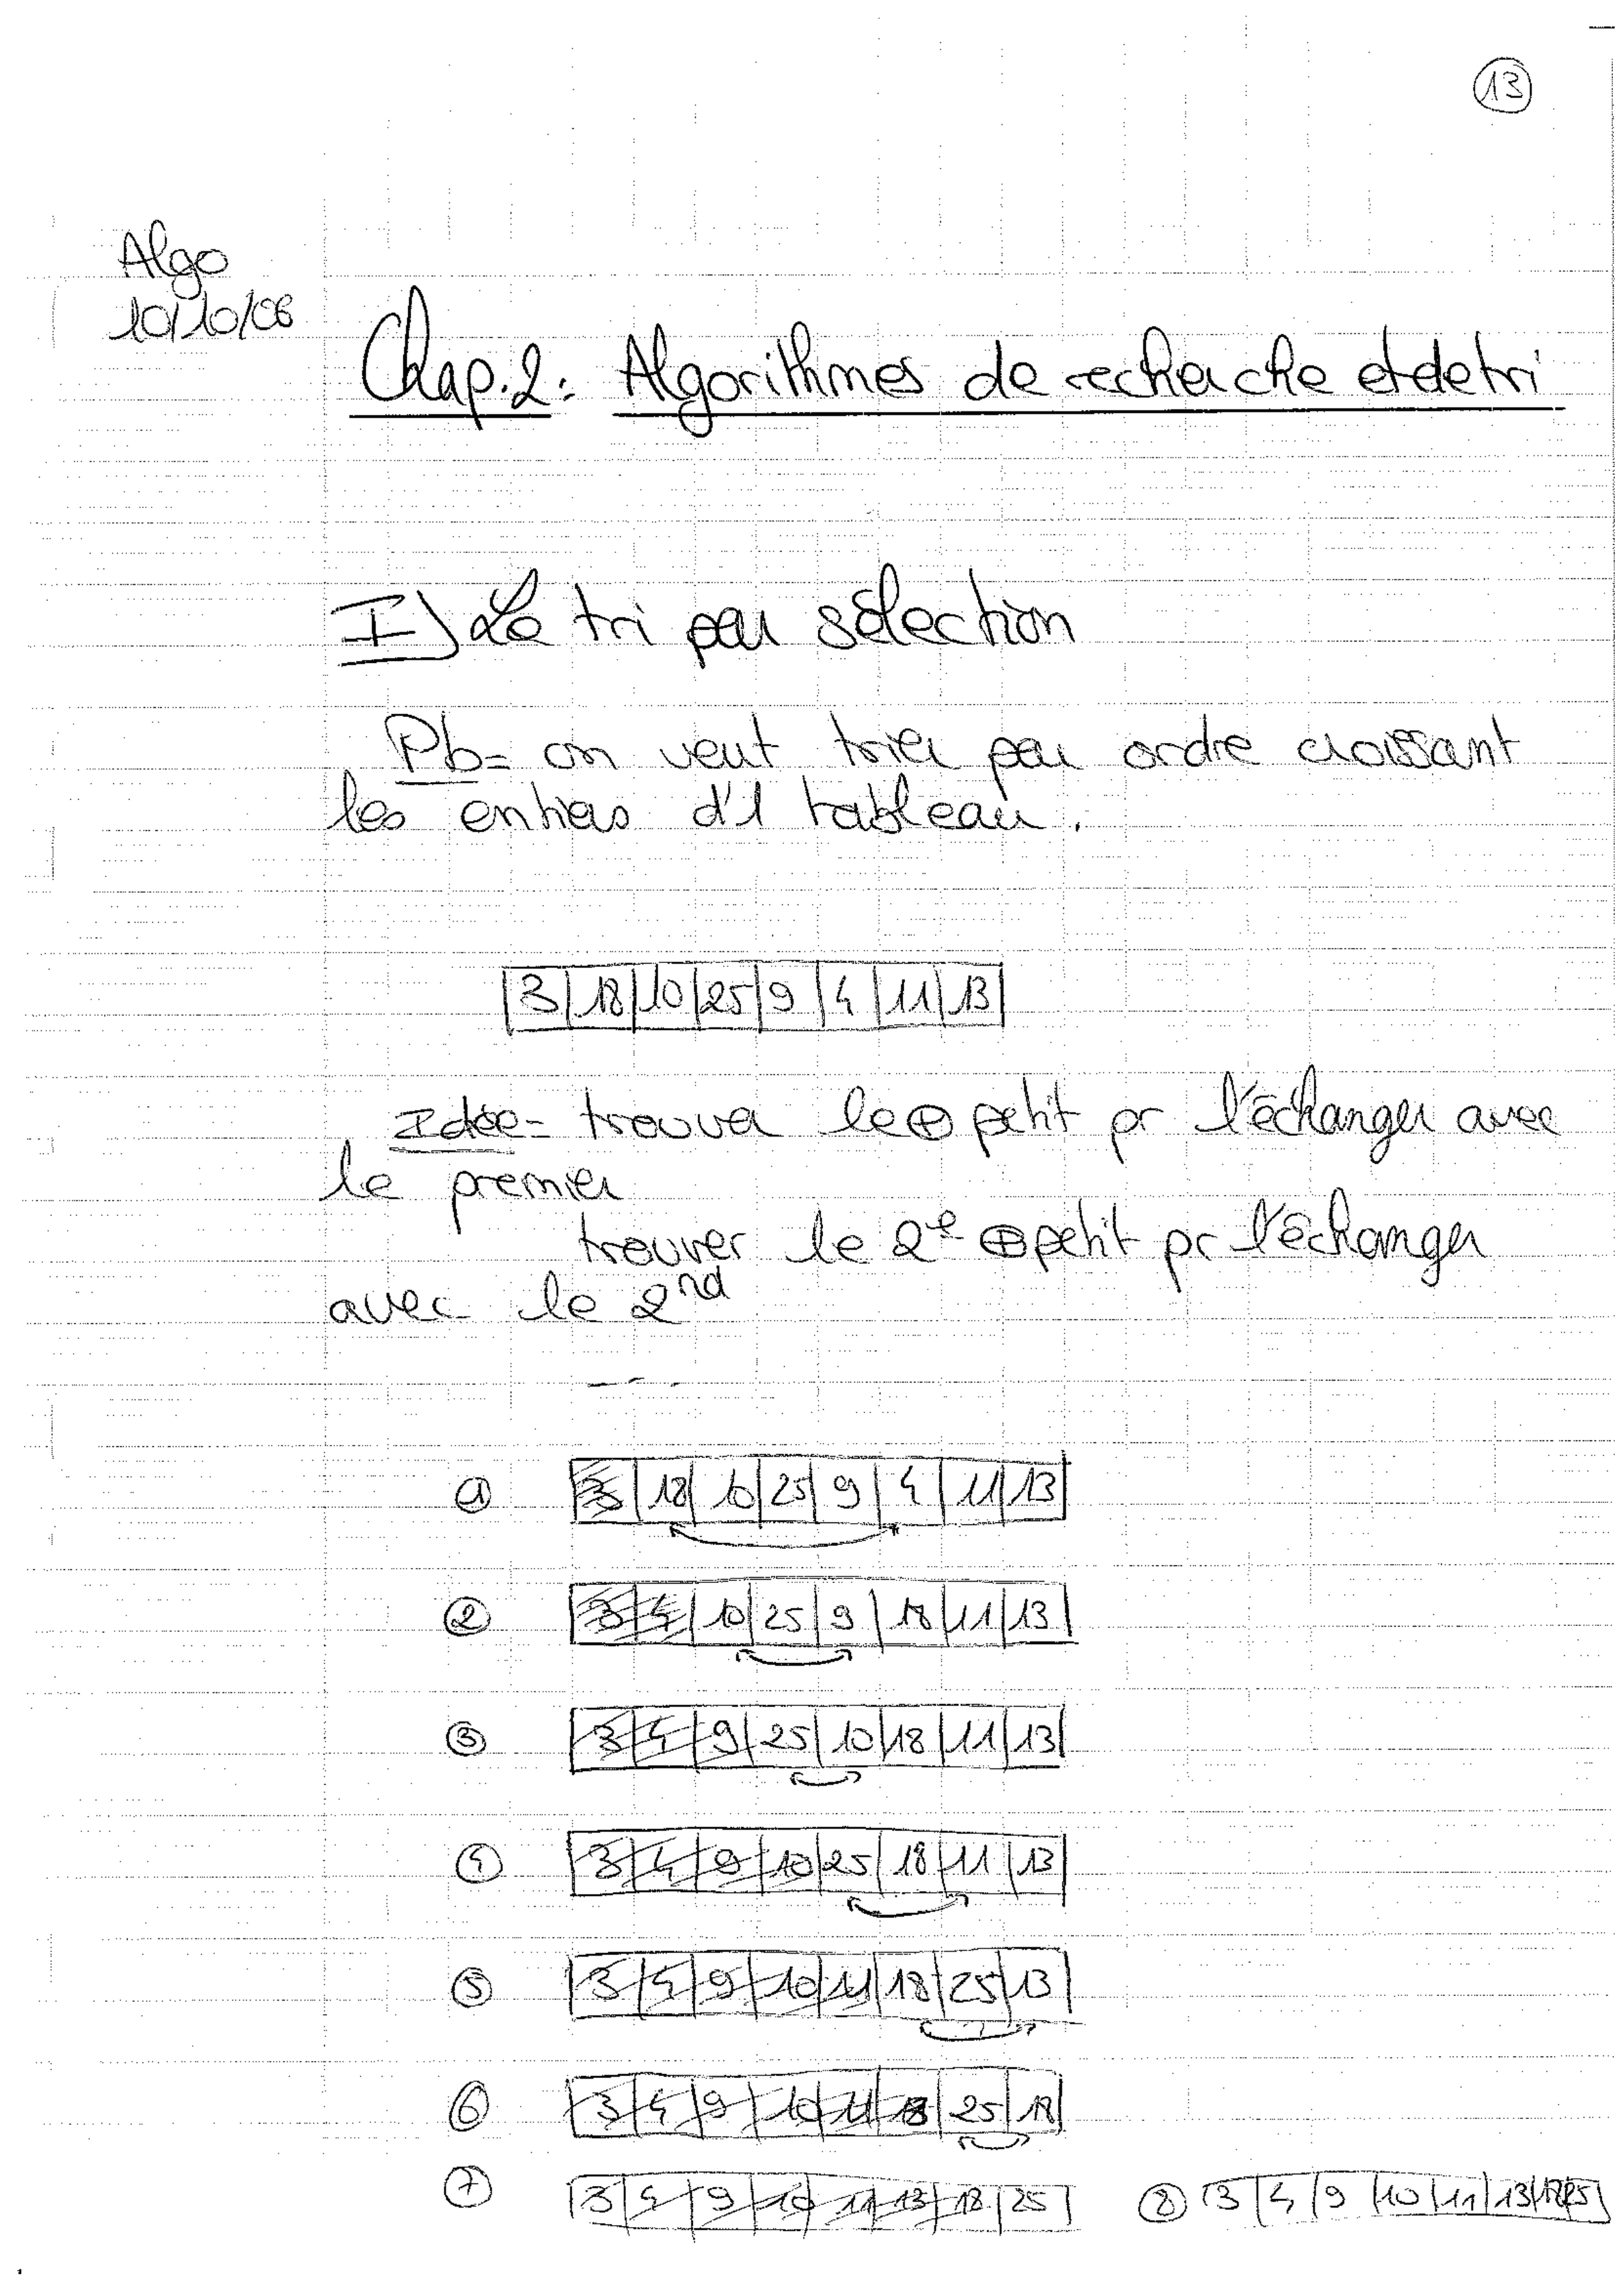 13
Algo
10/10/06
Chap.2: Algorithmes de recherche et de tri
I) Le tri par sélection
Pb= on veut trier par ordre croissant
les entiers d'1 tableau.
3 | 18 | 10 | 25 | 9 | 4 | 11 | 13
Idée= trouver le ⊕ petit pr l'échanger avec
le premier
trouver le 2e ⊕ petit pr l'échanger
avec le 2nd
① 3 | 18 | 10 | 25 | 9 | 4 | 11 | 13
② 3 | 4 | 10 | 25 | 9 | 18 | 11 | 13
③ 3 | 4 | 9 | 25 | 10 | 18 | 11 | 13
④ 3 | 4 | 9 | 10 | 25 | 18 | 11 | 13
⑤ 3 | 4 | 9 | 10 | 11 | 18 | 25 | 13
⑥ 3 | 4 | 9 | 10 | 11 | 13 | 25 | 18
⑦ 3 | 4 | 9 | 10 | 11 | 13 | 18 | 25 ⑧ 3 | 4 | 9 | 10 | 11 | 13 | 18 | 25